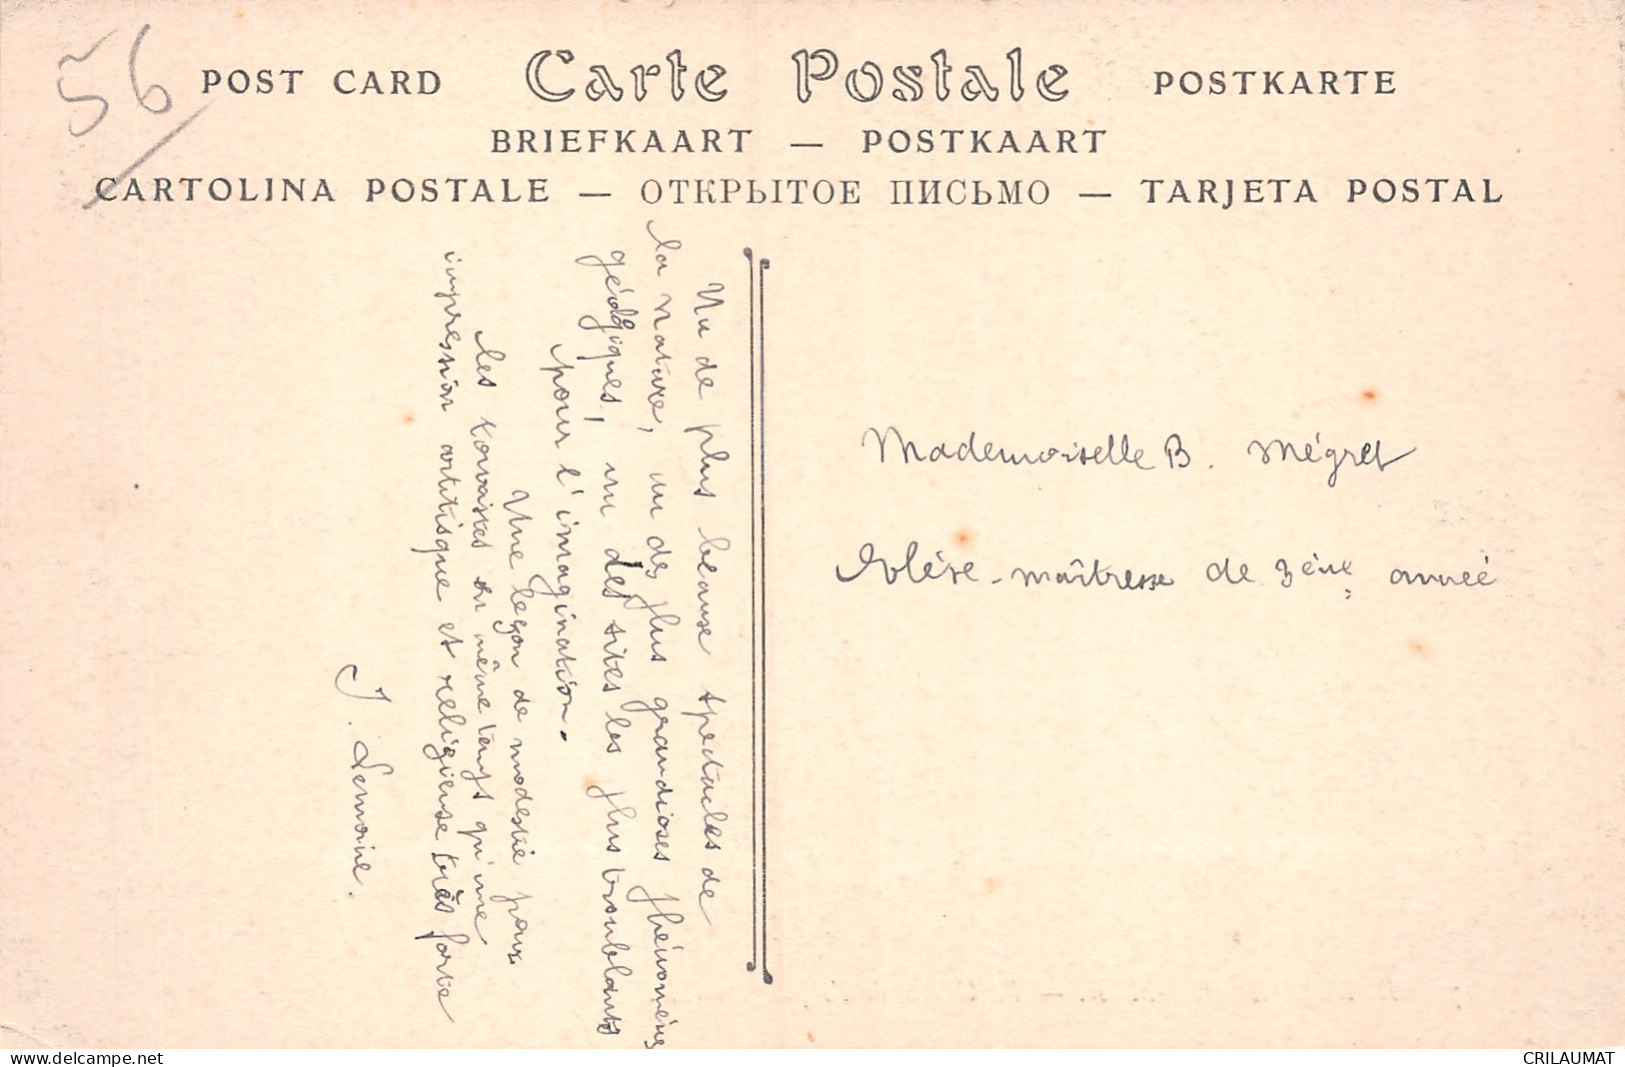 56
POST CARD Carte Postale POSTKARTE
BRIEFKAART — POSTKAART
CARTOLINA POSTALE — ОТКРЫТОЕ ПИСЬМО — TARJETA POSTAL
Un de plus beaux spectacles de
la nature, un des plus grandioses phénomènes
géologiques, un des sites les plus troublants
pour l'imagination.
Une leçon de modestie pour
les touristes en même temps qu'une
impression artistique et religieuse très forte
J. Lemoine.
Mademoiselle B. Mégret
Elève-maîtresse de 3ème année
delcampe.net
CRILAUMAT